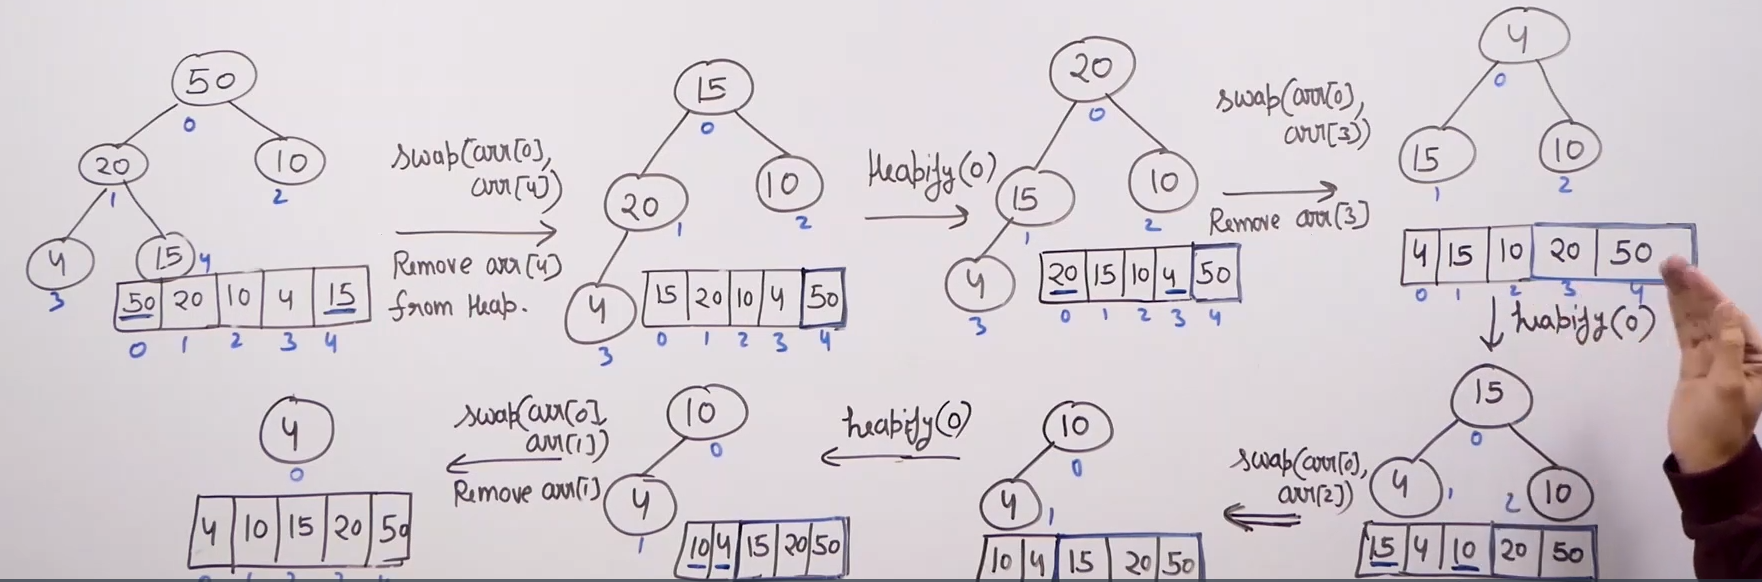 50
0
20
10
1
2
4
15
3
4
50 20 10 4 15
0 1 2 3 4
swap(arr[0],
arr[4])
Remove arr[4]
from Heap.
15
0
20
10
1
2
4
3
15 20 10 4 50
0 1 2 3 4
Heapify(0)
20
0
15
10
1
2
4
3
20 15 10 4 50
0 1 2 3 4
swap(arr[0],
arr[3])
Remove arr[3]
4
0
15
10
1
2
4 15 10 20 50
0 1 2 3 4
heapify(0)
15
0
4
1
2
10
15 4 10 20 50
swap(arr[0],
arr[2])
10
0
4
1
10 4 15 20 50
heapify(0)
10
0
4
1
10 4 15 20 50
swap(arr[0],
arr[1])
Remove arr[1]
4
0
4 10 15 20 50